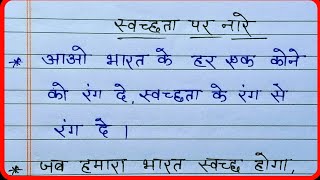 स्वच्छता पर नारे
* आओ भारत के हर एक कोने
को रंग दे, स्वच्छता के रंग से
रंग दे ।
* जब हमारा भारत स्वच्छ होगा,